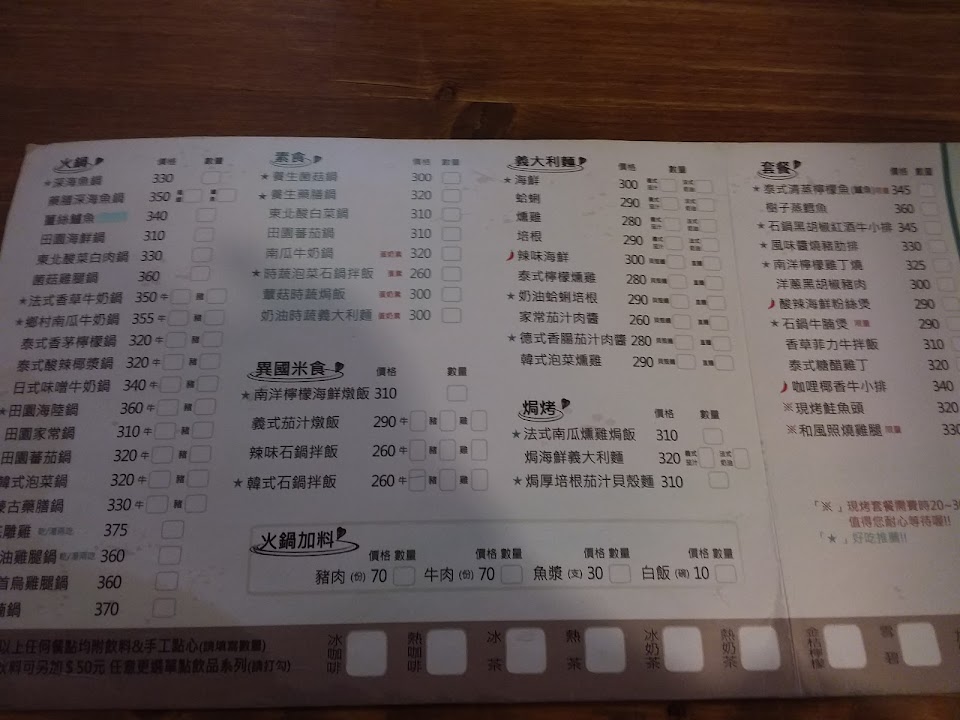 火鍋 價格 數量
★深海魚鍋 330
藥膳深海魚鍋 350
薑絲鱸魚 340
田園海鮮鍋 310
東北酸菜白肉鍋 330
菌菇雞腿鍋 360
★法式香草牛奶鍋 350 牛 豬
★鄉村南瓜牛奶鍋 355 牛 豬
泰式香茅檸檬鍋 320 牛 豬
泰式酸辣椰漿鍋 320 牛 豬
日式味噌牛奶鍋 340 牛 豬
★田園海陸鍋 360 牛 豬
田園家常鍋 310 牛 豬
田園蕃茄鍋 320 牛 豬
韓式泡菜鍋 320 牛 豬
蒙古藥膳鍋 330 牛 豬
雕雞 375
油雞腿鍋 360
首烏雞腿鍋 360
鍋 370
素食 價格 數量
★養生菌菇鍋 300
★養生藥膳鍋 320
東北酸白菜鍋 310
田園蕃茄鍋 310
南瓜牛奶鍋 蛋奶素 320
★時蔬泡菜石鍋拌飯 蛋素 260
蕈菇時蔬焗飯 蛋奶素 300
奶油時蔬義大利麵 蛋奶素 300
異國米食 價格 數量
★南洋檸檬海鮮燉飯 310
義式茄汁燉飯 290 牛 豬 雞
辣味石鍋拌飯 260 牛 豬 雞
★韓式石鍋拌飯 260 牛 豬 雞
義大利麵 價格 數量
★海鮮 300 義式茄汁 法式奶油
蛤蜊 290 義式茄汁 法式奶油
燻雞 280 義式茄汁 法式奶油
培根 290 義式茄汁 法式奶油
辣味海鮮 300 貝殼麵 直麵
泰式檸檬燻雞 280 貝殼麵 直麵
★奶油蛤蜊培根 290 貝殼麵 直麵
家常茄汁肉醬 260 貝殼麵 直麵
★德式香腸茄汁肉醬 280 貝殼麵 直麵
韓式泡菜燻雞 290 貝殼麵 直麵
焗烤 價格 數量
★法式南瓜燻雞焗飯 310
焗海鮮義大利麵 320 義式茄汁 法式奶油
★焗厚培根茄汁貝殼麵 310
套餐 價格
★泰式清蒸檸檬魚(鱸魚)限量 345
樹子蒸鱈魚 360
★石鍋黑胡椒紅酒牛小排 345
★風味醬燒豬肋排 330
★南洋檸檬雞丁燒 325
洋蔥黑胡椒豬肉 300
酸辣海鮮粉絲煲 290
★石鍋牛腩煲 限量 290
香草菲力牛拌飯 310
泰式糖醋雞丁 320
咖哩椰香牛小排 340
※現烤鮭魚頭 320
※和風照燒雞腿 限量 330
「※」現烤套餐需費時20~30
值得您耐心等待喔!!
「★」好吃推薦!!
火鍋加料
價格 數量 價格 數量 價格 數量 價格 數量
豬肉(份) 70 牛肉(份) 70 魚漿(支) 30 白飯(碗) 10
以上任何餐點均附飲料&手工點心(請填寫數量)
飲料可另加$50元 任意更選單點飲品系列(請打勾)
冰咖啡 熱咖啡 冰茶 熱茶 冰奶茶 熱奶茶 金桔檸檬 雪碧